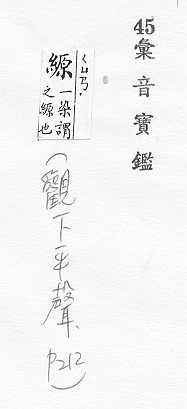 45彙音寶鑑
ㄑㄩㄢ.
縓
一染謂
之縓也
(觀下平聲, p212)